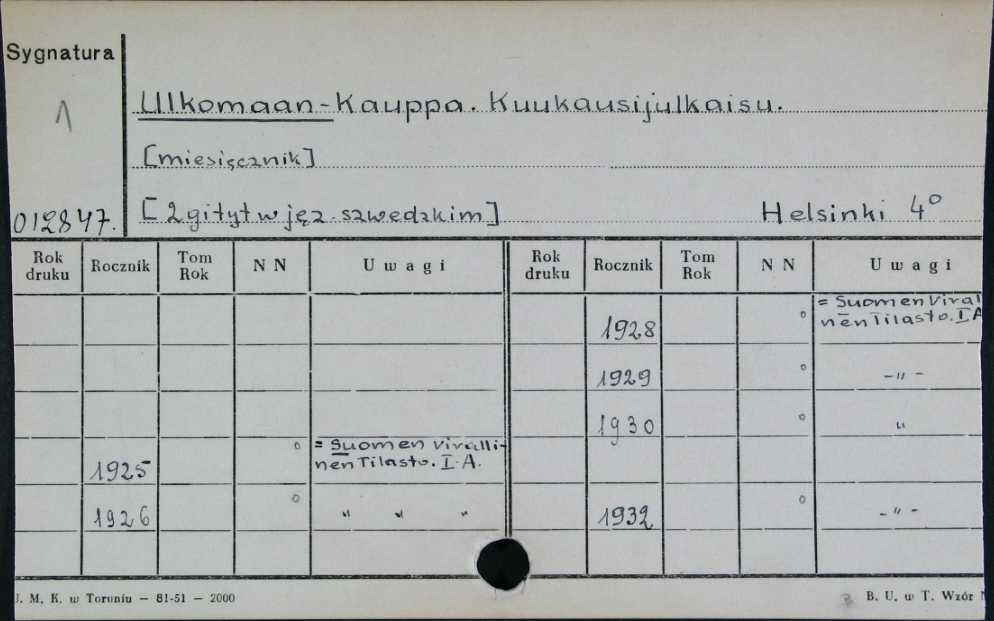 Sygnatura
1
Ulkomaan-Kauppa. Kuukausijulkaisu.
[miesięcznik]
[2 gi tyt w jęz. szwedzkim] Helsinki 4°
012847.
Rok druku Rocznik Tom Rok N N Uwagi Rok druku Rocznik Tom Rok N N Uwagi
1928 ° = Suomen Viral
nen Tilasto. I A
1929 ° -„-
1930 ° „
1925 ° = Suomen Viralli-
nen Tilasto. I. A.
1926 ° „ „ „
1932 ° -„-
J. M. K. w Toruniu — 81-51 — 2000
B. U. w T. Wzór